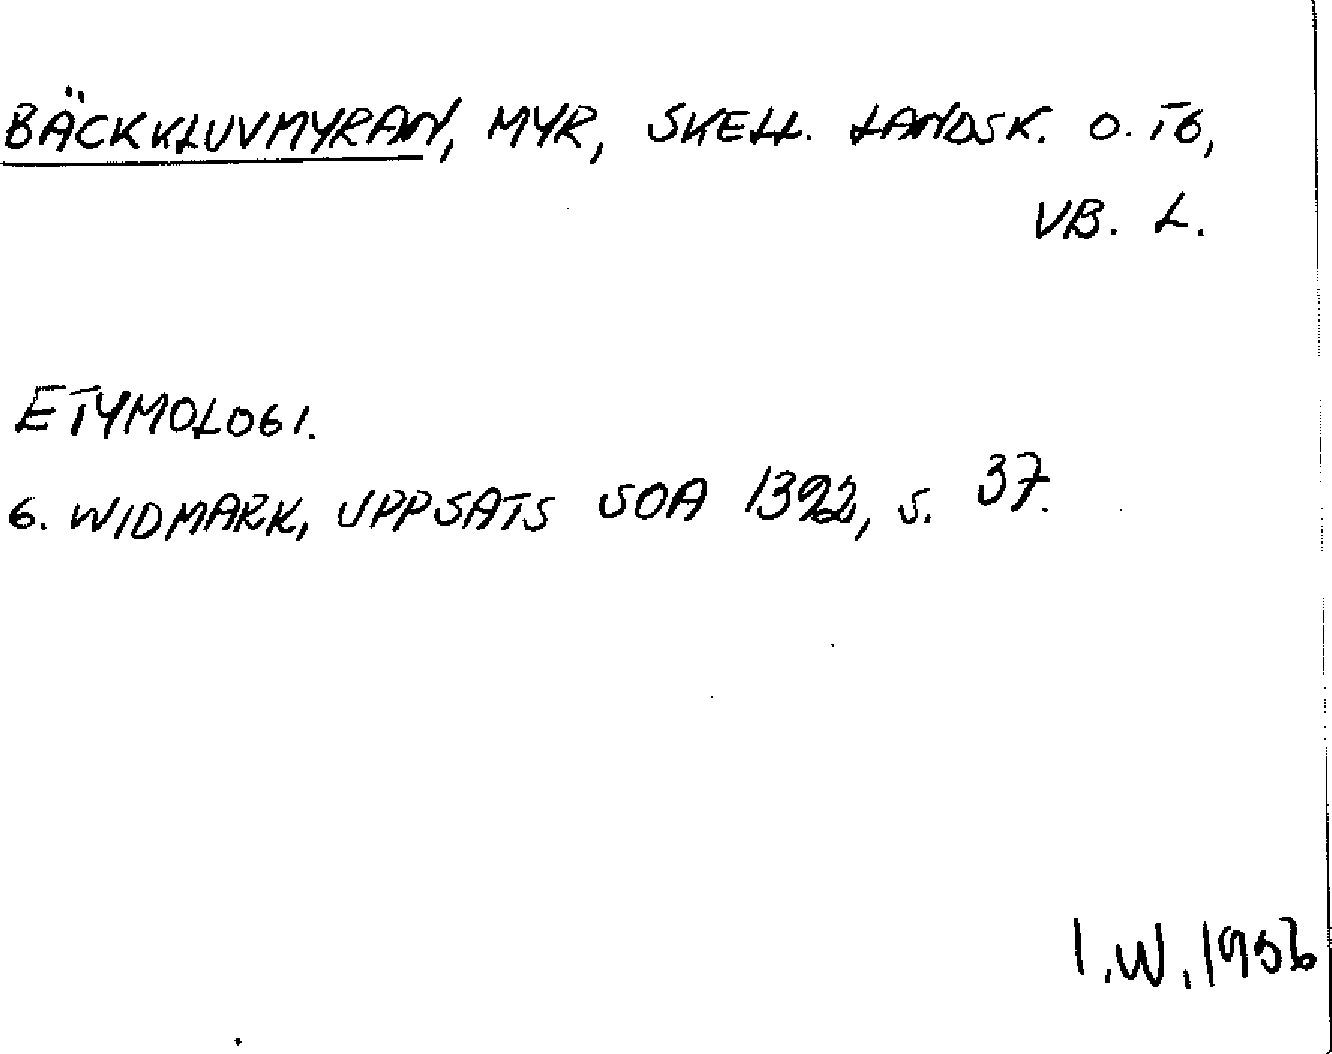 BÄCKKLUVMYRAN, MYR, SKELL. LANDSK. O. TG,
VB. L.
ETYMOLOGI.
G. WIDMARK, UPPSATS SOA 1392, S. 37.
I.W. 1956